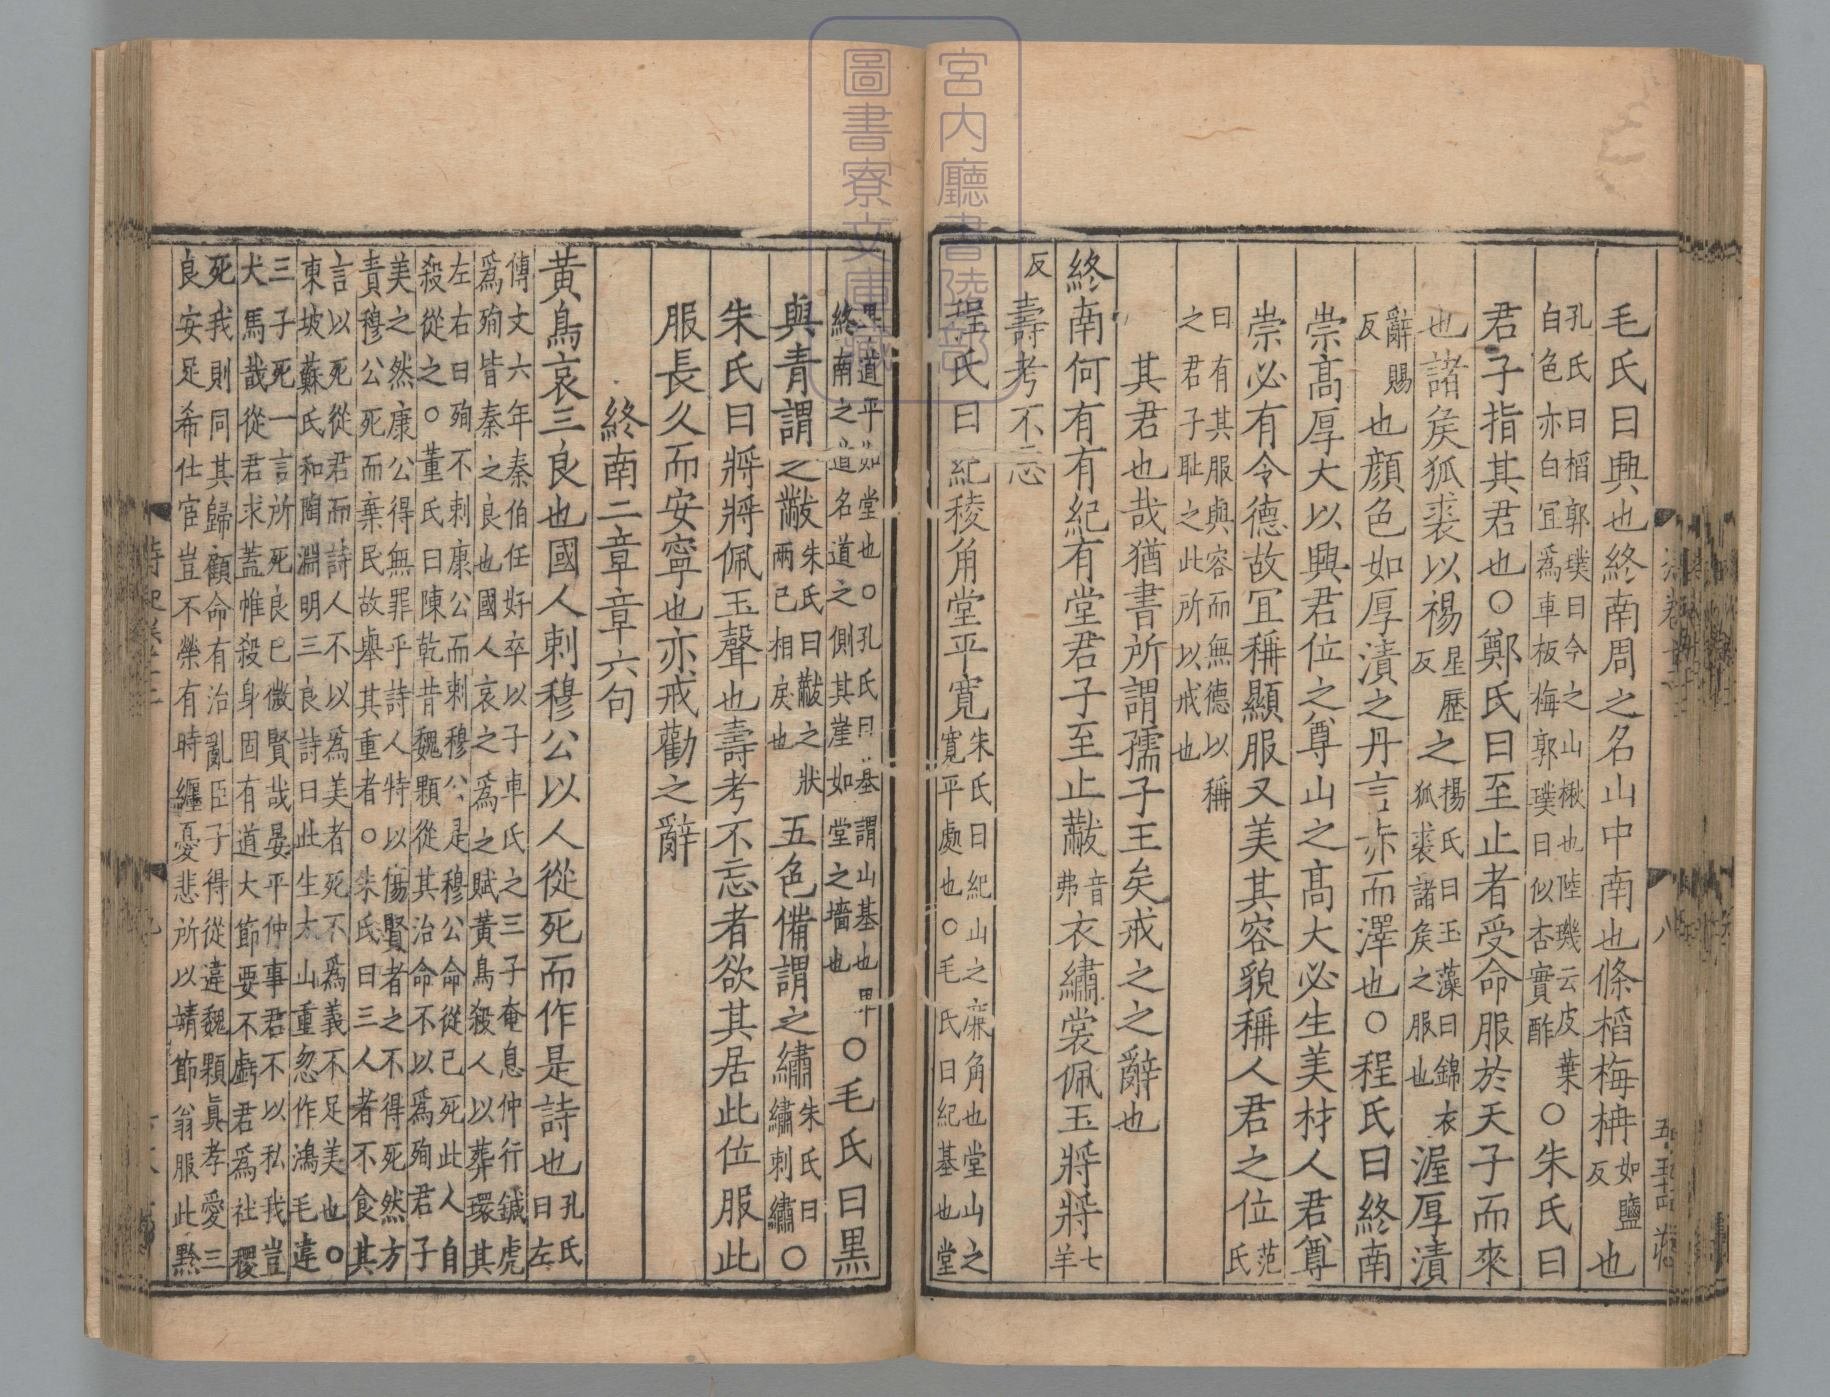 毛氏曰興也終南周之名山中南也條稻梅柟如鹽反也
孔氏曰稻郭璞曰今之山楸也陸璣云皮葉白色亦白宜爲車板梅郭璞曰似杏實酢○朱氏曰
君子指其君也○鄭氏曰至止者受命服於天子而來
也諸矦狐裘以裼星歷反之揚氏曰玉藻曰錦衣狐裘諸矦之服也渥厚漬
辭賜反也顔色如厚漬之丹言亦而澤也○程氏曰終南
崇高厚大以興君位之尊山之高大必生美材人君尊
崇必有令德故冝稱顯服又美其容貌稱人君之位范氏
曰有其服與容而無德以稱之君子耻之此所以戒也
其君也哉猶書所謂孺子王矣戒之之辭也
終南何有有紀有堂君子至止黻音弗衣繡裳佩玉將將七羊
反壽考不忘
程氏曰紀稜角堂平寛朱氏曰紀山之㢘角也堂山之寛平處也○毛氏曰紀基也堂
畢道平如堂也○孔氏曰基謂山基也畢終南之道名道之側其崖如堂之墻也○毛氏曰黒
與青謂之黻朱氏曰黻之狀兩己相戾也五色備謂之繡朱氏曰繡刺繡○
朱氏曰將將佩玉聲也壽考不忘者欲其居此位服此
服長久而安寧也亦戒勸之辭
終南二章章六句
黄鳥哀三良也國人刺穆公以人從死而作是詩也孔氏曰左
傳文六年秦伯任好卒以子車氏之三子奄息仲行鍼虎爲殉皆秦之良也國人哀之爲之賦黄鳥殺人以葬環其
左右曰殉不刺康公而刺穆公是穆公命從己死此人自殺從之○董氏曰陳乾昔魏顆從其治命不以爲殉君子
美之然康公得無罪乎詩人特以傷賢者之不得死然方責穆公死而棄民故舉其重者○朱氏曰三人者不食其
言以死從君而詩人不以爲美者死不爲義不足美也○東坡蘇氏和陶淵明三良詩曰此生太山重忽作鴻毛違
三子死一言所死良已微賢哉晏平仲事君不以私我豈犬馬哉從君求蓋帷殺身固有道大節要不虧君爲社稷
死我則同其歸顧命有治亂臣子得從違魏顆眞孝愛三良安足希仕宦豈不榮有時纒憂悲所以靖節翁服此黔
宮内廳書陵部
圖書寮文庫藏